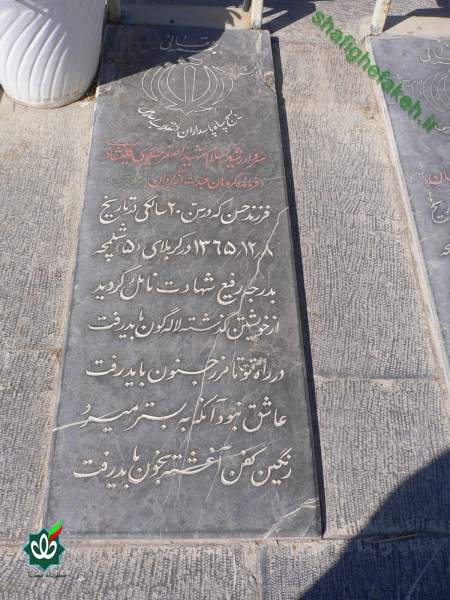 بقائی
بسیج سپاه پاسداران انقلاب اسلامی
سردار رشید اسلام شهید اصغر
فرزند حسن که در سن ۲۰ سالگی در تاریخ
۱۳۶۵/۱۲/۸ در کربلای (۵) شلمچه
بدرجه رفیع شهادت نائل گردید
از خویشتن گذشته لاله گون باید رفت
در راه تو تا مرز جنون باید رفت
عاشق نبود آنکه به بستر میرد
رنگین کفن آغشته بخون باید رفت
shafighefakeh.ir